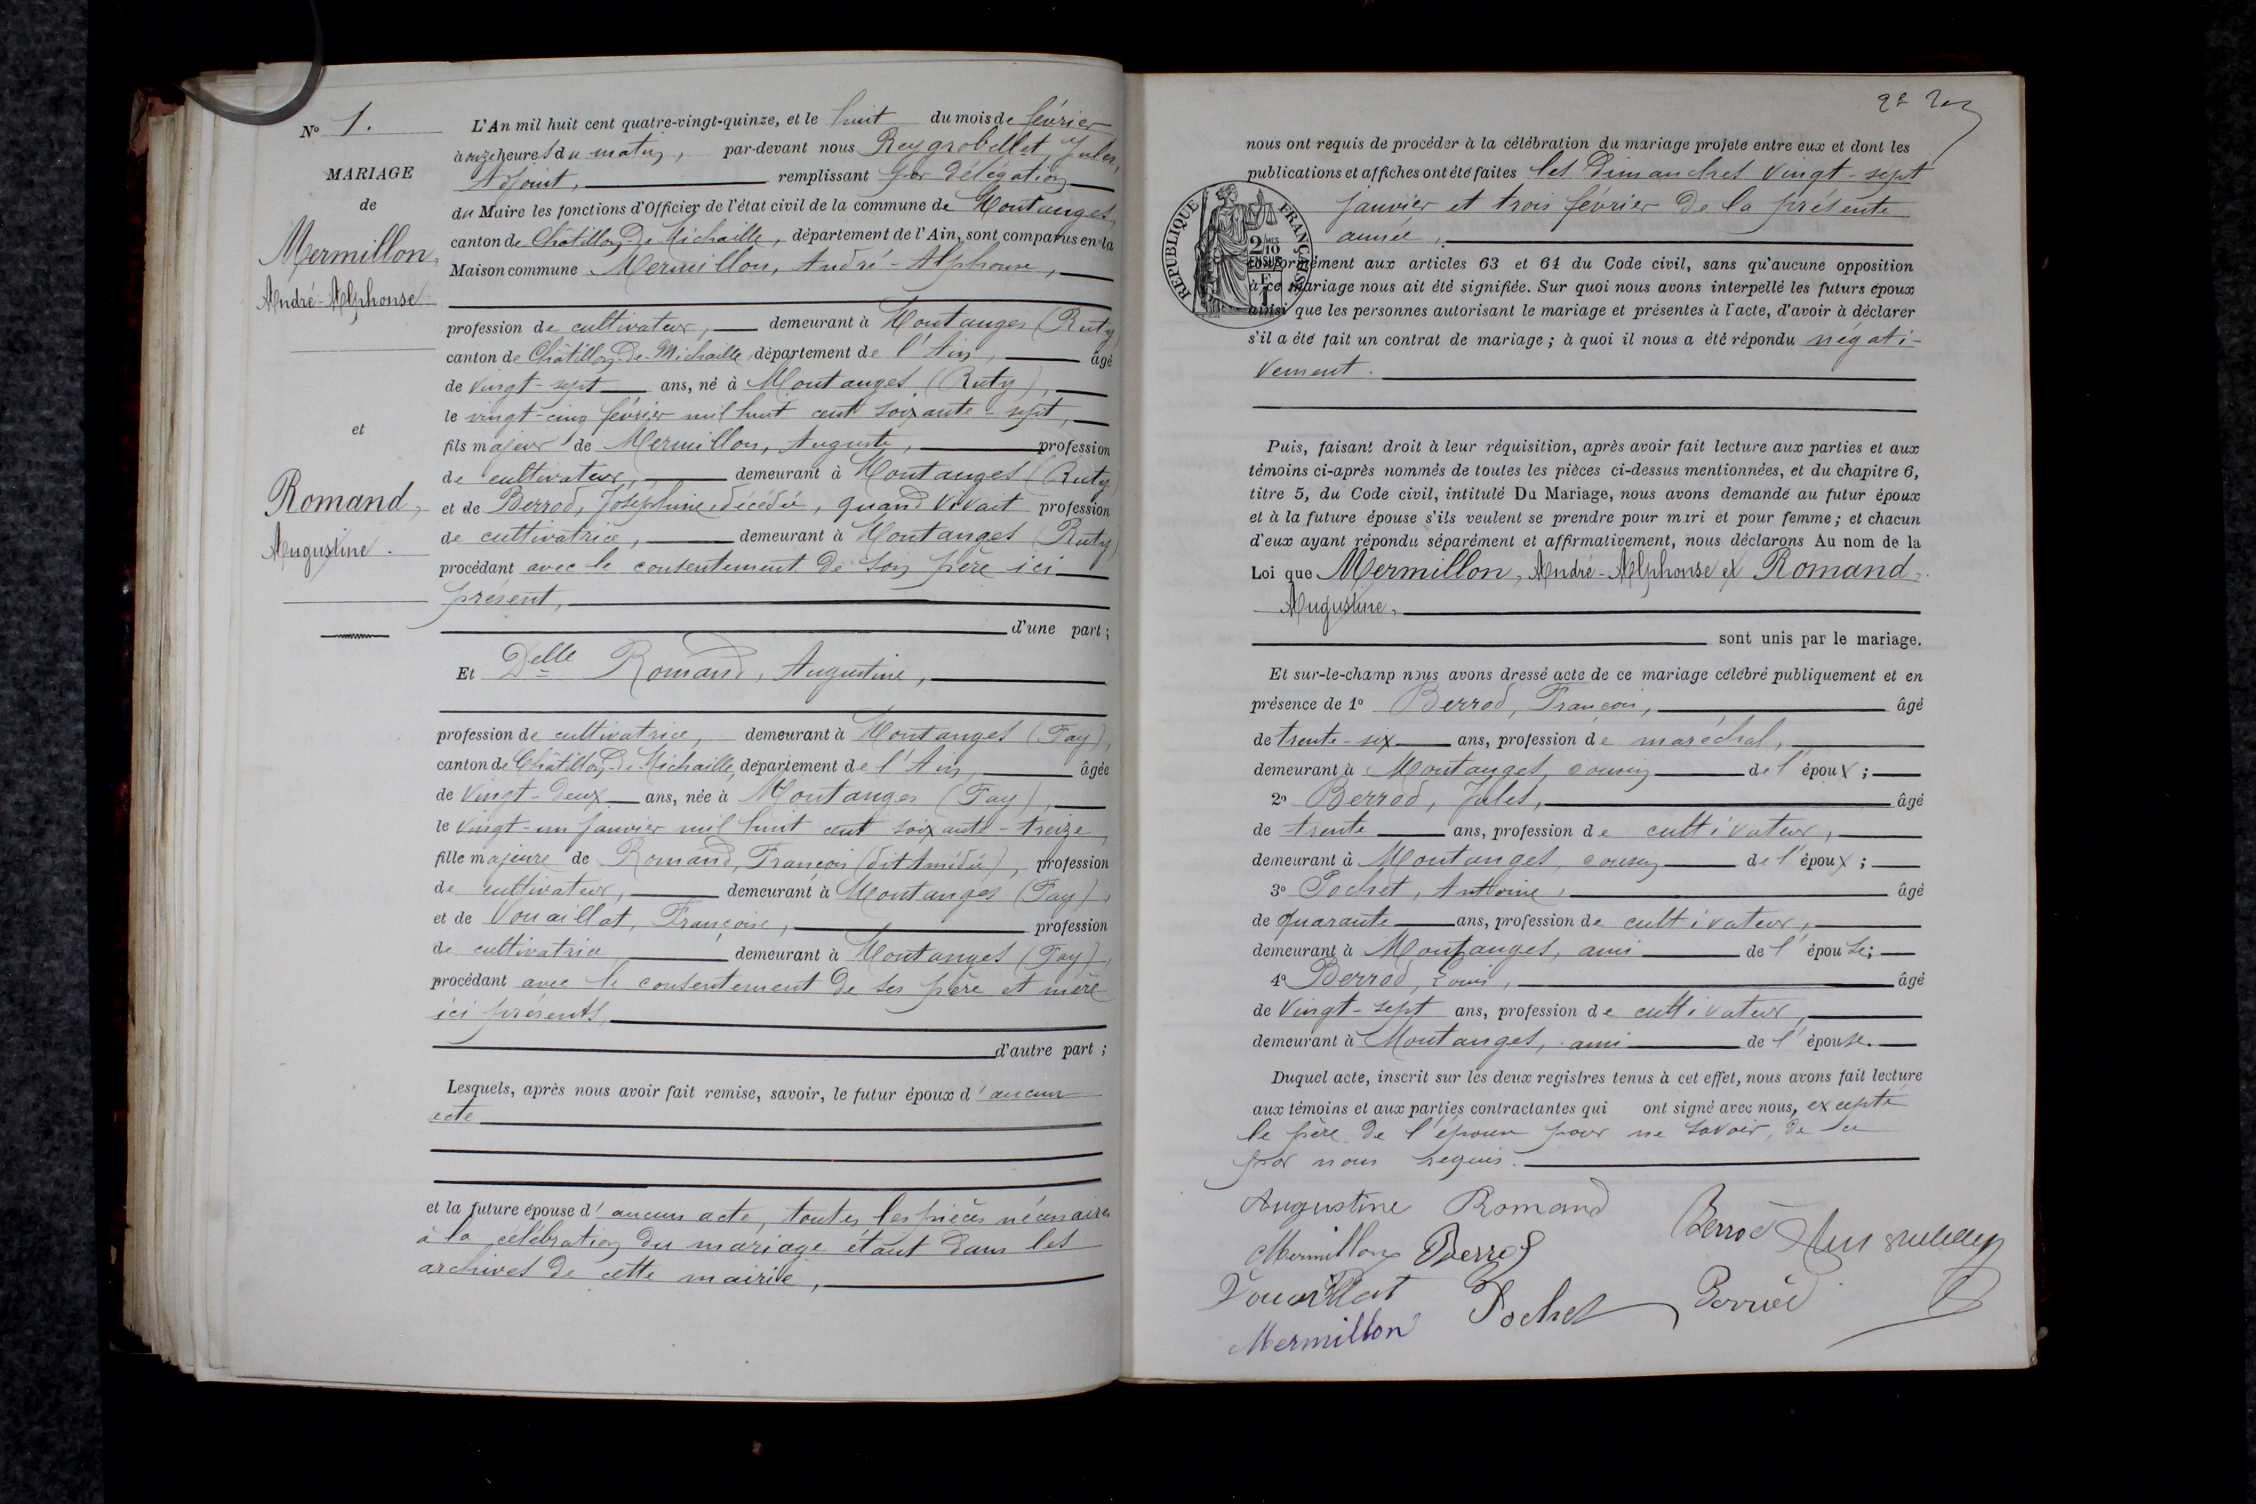 N° 1.
MARIAGE
de
Mermillon,
André-Alphonse
et
Romand,
Augustine.
L'An mil huit cent quatre-vingt-quinze, et le huit du mois de février
à onze heures du matin, par-devant nous Reygrobellet Jules,
Adjoint, remplissant par délégation
du Maire les fonctions d'Officier de l'état civil de la commune de Montanges,
canton de Châtillon-de-Michaille, département de l'Ain, sont comparus en la
Maison commune Mermillon, André-Alphonse,
profession de cultivateur, demeurant à Montanges (Ruty)
canton de Châtillon-de-Michaille, département de l'Ain, âgé
de vingt-sept ans, né à Montanges (Ruty),
le vingt-cinq février mil huit cent soixante-sept,
fils majeur de Mermillon, Auguste, profession
de cultivateur, demeurant à Montanges (Ruty)
et de Berrod, Joséphine, décédée, quand vivait profession
de cultivatrice, demeurant à Montanges (Ruty)
procédant avec le consentement de son père ici
présent,
d'une part;
Et Delle Romand, Augustine,
profession de cultivatrice, demeurant à Montanges (Fay),
canton de Châtillon-de-Michaille, département de l'Ain, âgée
de vingt-deux ans, née à Montanges (Fay),
le vingt-un janvier mil huit cent soixante-treize,
fille majeure de Romand, François (dit Amédée), profession
de cultivateur, demeurant à Montanges (Fay),
et de Vouaillat, Françoise, profession
de cultivatrice demeurant à Montanges (Fay),
procédant avec le consentement de ses père et mère
ici présents,
d'autre part;
Lesquels, après nous avoir fait remise, savoir, le futur époux d'aucun
acte
et la future épouse d'aucun acte, toutes les pièces nécessaires
à la célébration du mariage étant dans les
archives de cette mairie,
nous ont requis de procéder à la célébration du mariage projeté entre eux et dont les
publications et affiches ont été faites les Dimanches vingt-sept
janvier et trois février de la présente
année,
RÉPUBLIQUE FRANÇAISE
2/10
EN SUS
conformément aux articles 63 et 64 du Code civil, sans qu'aucune opposition
à ce mariage nous ait été signifiée. Sur quoi nous avons interpellé les futurs époux
ainsi que les personnes autorisant le mariage et présentes à l'acte, d'avoir à déclarer
s'il a été fait un contrat de mariage; à quoi il nous a été répondu négati-
vement.
Puis, faisant droit à leur réquisition, après avoir fait lecture aux parties et aux
témoins ci-après nommés de toutes les pièces ci-dessus mentionnées, et du chapitre 6,
titre 5, du Code civil, intitulé Du Mariage, nous avons demandé au futur époux
et à la future épouse s'ils veulent se prendre pour mari et pour femme; et chacun
d'eux ayant répondu séparément et affirmativement, nous déclarons Au nom de la
Loi que Mermillon, André-Alphonse et Romand,
Augustine,
sont unis par le mariage.
Et sur-le-champ nous avons dressé acte de ce mariage célébré publiquement et en
présence de 1° Berrod, François, âgé
de trente-six ans, profession de maréchal,
demeurant à Montanges, cousin de l'époux;
2° Berrod, Jules, âgé
de trente ans, profession de cultivateur,
demeurant à Montanges, cousin de l'époux;
3° Pochet, Antoine, âgé
de quarante ans, profession de cultivateur,
demeurant à Montanges, ami de l'épouse;
4° Berrod, Louis, âgé
de vingt-sept ans, profession de cultivateur,
demeurant à Montanges, ami de l'épouse.
Duquel acte, inscrit sur les deux registres tenus à cet effet, nous avons fait lecture
aux témoins et aux parties contractantes qui ont signé avec nous, excepté
le père de l'époux pour ne savoir, de ce
par nous requis.
Augustine Romand
Mermillon Berrod Berrod
Vouaillat Pochet Berrod
Mermillon